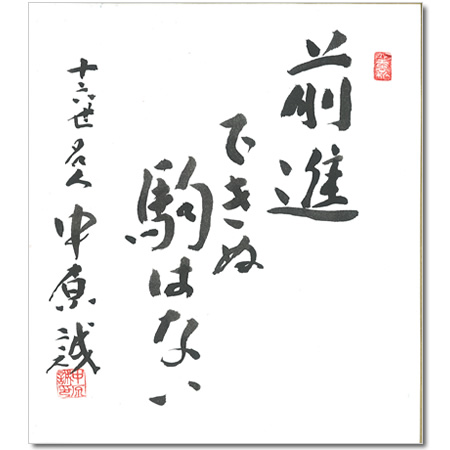 前進
できぬ
駒はない
十六世名人 中原誠